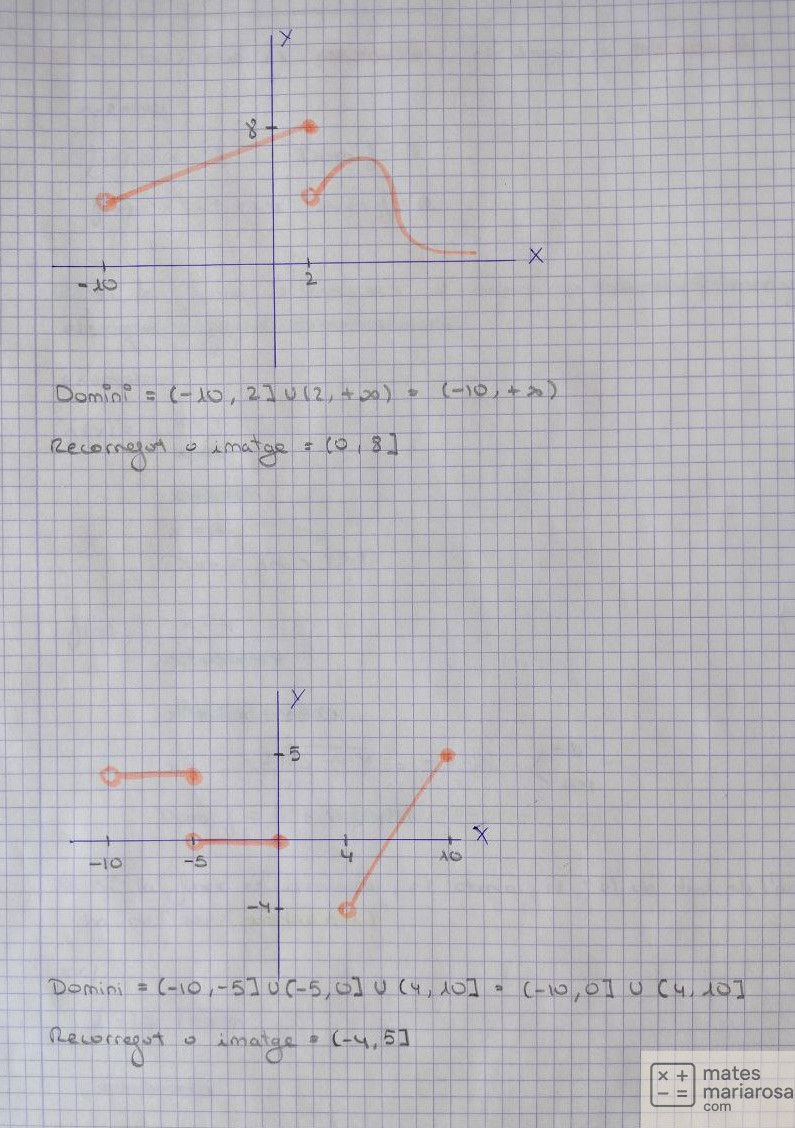 Y
8
X
-10 2
Domini = (-10, 2] ∪ (2, +∞) = (-10, +∞)
Recorregut o imatge = (0, 8]
Y
5
X
-10 -5 4 10
-4
Domini = (-10, -5] ∪ (-5, 0] ∪ (4, 10] = (-10, 0] ∪ (4, 10]
Recorregut o imatge = (-4, 5]
× +
− =
mates
mariarosa
com